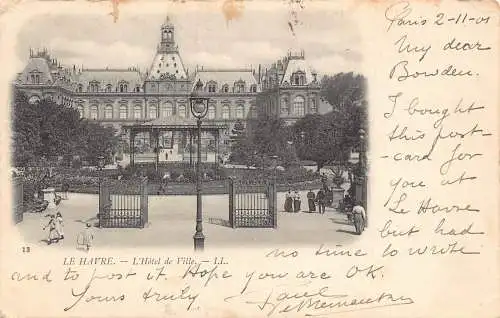 Paris 2-11-01
My dear
Bowden.
I bought
this post-
card for
you at
Le Havre
but had
no time to write
13 LE HAVRE. – L'Hôtel de Ville. – LL.
and to post it. Hope you are OK.
Yours truly,
Paul